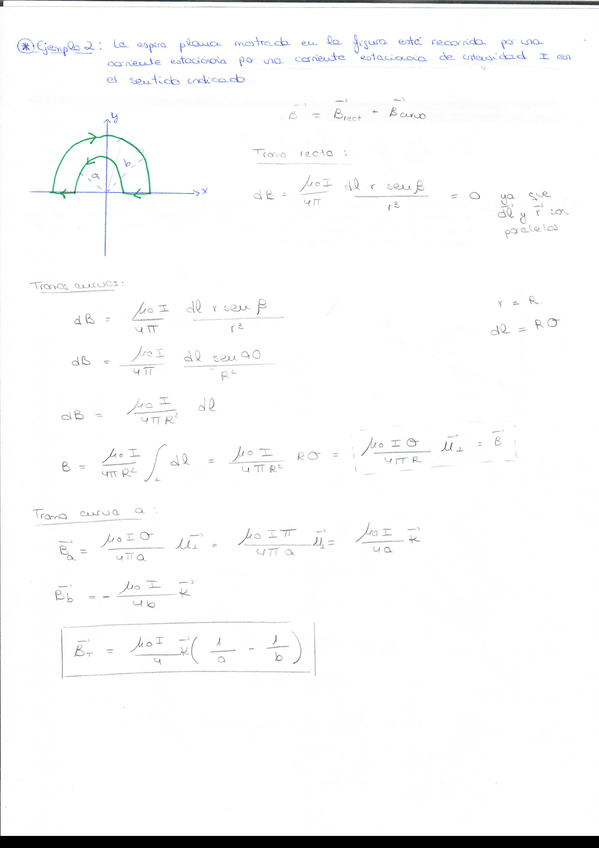 * Ejemplo 2: La espira plana mostrada en la figura está recorrida po una
corriente estacionaria por una corriente estacionaria de intensidad I en
el sentido indicado.
B⃗ = B⃗rect + B⃗curvo
y
a
b
x
Tramo recto:
dB = μ0 I / 4π · dl r sen β / r² = 0 ya que
dl⃗ y r⃗ son
paralelos
Tramos curvos:
dB = μ0 I / 4π · dl r sen β / r²
r = R
dl = RΘ
dB = μ0 I / 4π · dl sen 90 / R²
dB = μ0 I / 4πR² dl
B = μ0 I / 4πR² ∫L dl = μ0 I / 4πR² RΘ = μ0 I Θ / 4πR μ⃗⊥ = B⃗
Tramo curva a:
B⃗a = μ0 I Θ / 4πa μ⃗⊥ = μ0 I π / 4πa μ⃗⊥ = μ0 I / 4a k⃗
B⃗b = - μ0 I / 4b k⃗
B⃗T = μ0 I / 4 k⃗ ( 1/a - 1/b )